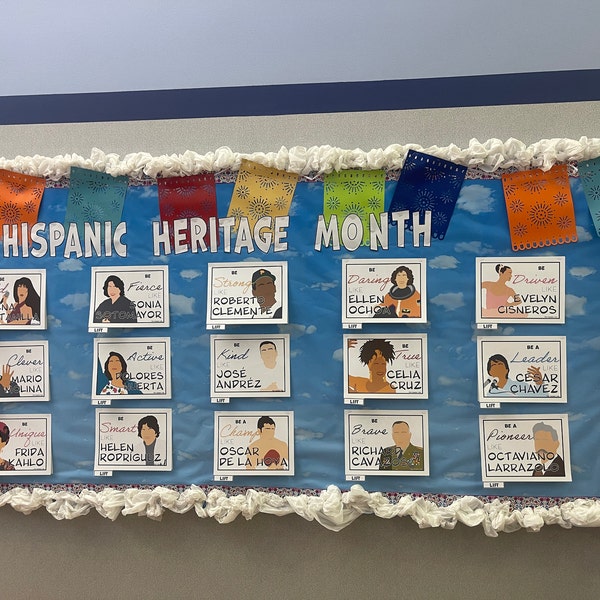 HISPANIC HERITAGE MONTH
BE
Fierce
LIKE
SONIA
SOTOMAYOR
LIFT
BE
Strong
LIKE
ROBERTO
CLEMENTE
LIFT
BE
Daring
LIKE
ELLEN
OCHOA
LIFT
BE
Driven
LIKE
EVELYN
CISNEROS
LIFT
BE
Clever
LIKE
MARIO
BE
Active
LIKE
DOLORES
LIFT
BE
Kind
LIKE
JOSÉ
ANDRÉZ
LIFT
BE
True
LIKE
CELIA
CRUZ
LIFT
BE A
Leader
LIKE
CÉSAR
CHÁVEZ
LIFT
BE
Unique
LIKE
FRIDA
KAHLO
BE
Smart
LIKE
HELEN
RODRIGUEZ
LIFT
BE A
Champ
LIKE
OSCAR
DE LA HOYA
LIFT
BE
Brave
LIKE
RICHARD
LIFT
BE A
Pioneer
LIKE
OCTAVIANO
LARRAZOLO
LIFT